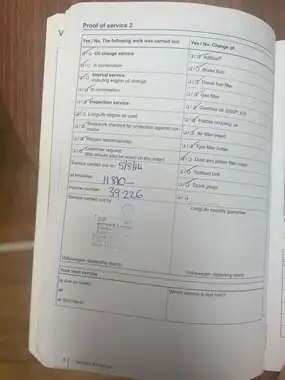 Proof of service 2
Yes / No: The following work was carried out:
Oil change service
in combination
Interval service
including engine oil change
in combination
Inspection service
LongLife engine oil used
Bodywork checked for protection against corrosion
Repairs recommended
Customer request
(this should also be noted on the order)
Service carried out on: 5/8/14
at km/miles: 11810 –
Invoice number: 39226
Service carried out by
Volkswagen dealership stamp
Yes / No: Change of:
AdBlue®
Brake fluid
Diesel fuel filter
Gas filter
Gearbox oil (DSG®, A/T)
Haldex coupling oil
Air filter insert
Tyre filler bottle
Dust and pollen filter insert
Toothed belt
Spark plugs
LongLife mobility guarantee
Volkswagen dealership stamp
Your next service
is due on (date)
or
at (km/miles)
Which service is due next?